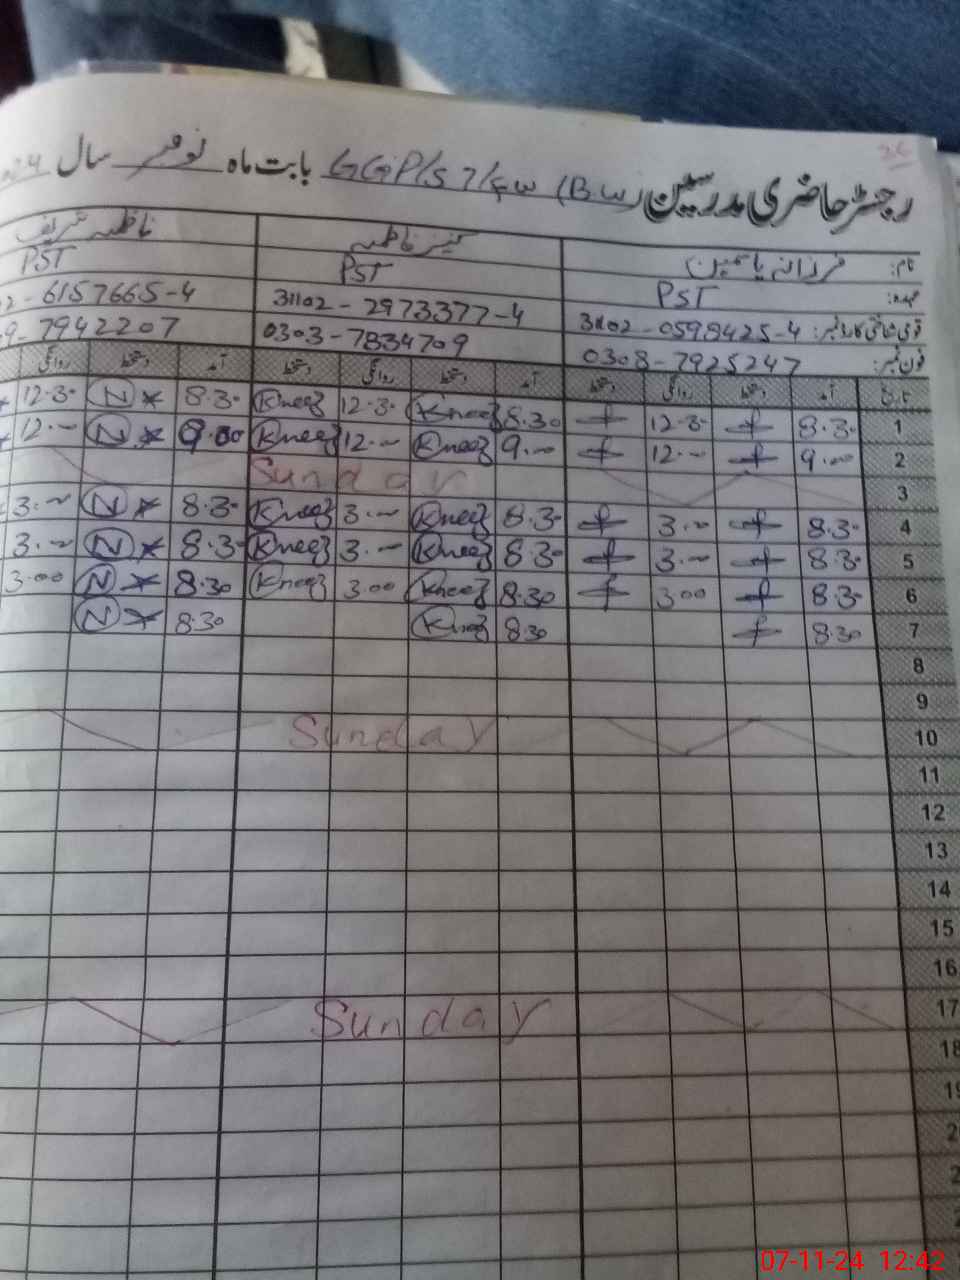 26
رجسٹر حاضری مدرسین GGP/S 7/FW (B.W) بابت ماہ نومبر سال
نام: فرزانہ یاسمین کنیز فاطمہ ناظمہ شریف
عہدہ: PST PST PST
قومی شناختی کارڈ نمبر: 31102-0598425-4 31102-2973377-4 02-6157665-4
فون نمبر: 0308-7925247 0303-7834709 9-7942207
تاریخ آمد دستخط روانگی دستخط آمد دستخط روانگی دستخط آمد دستخط روانگی
1 8.30 f 12.30 f 8.30 Kneez 12.30 Kneez 8.30 N 12.30
2 9.00 f 12.00 f 9.00 Kneez 12.00 Kneez 9.00 N 12.00
3 Sunday
4 8.30 f 3.00 f 8.30 Kneez 3.00 Kneez 8.30 N 3.00
5 8.30 f 3.00 f 8.30 Kneez 3.00 Kneez 8.30 N 3.00
6 8.30 f 3.00 f 8.30 Kneez 3.00 Kneez 8.30 N 3.00
7 8.30 f 8.30 Kneez 8.30 N
8
9
10 Sunday
11
12
13
14
15
16
17 Sunday
18
07-11-24 12:42